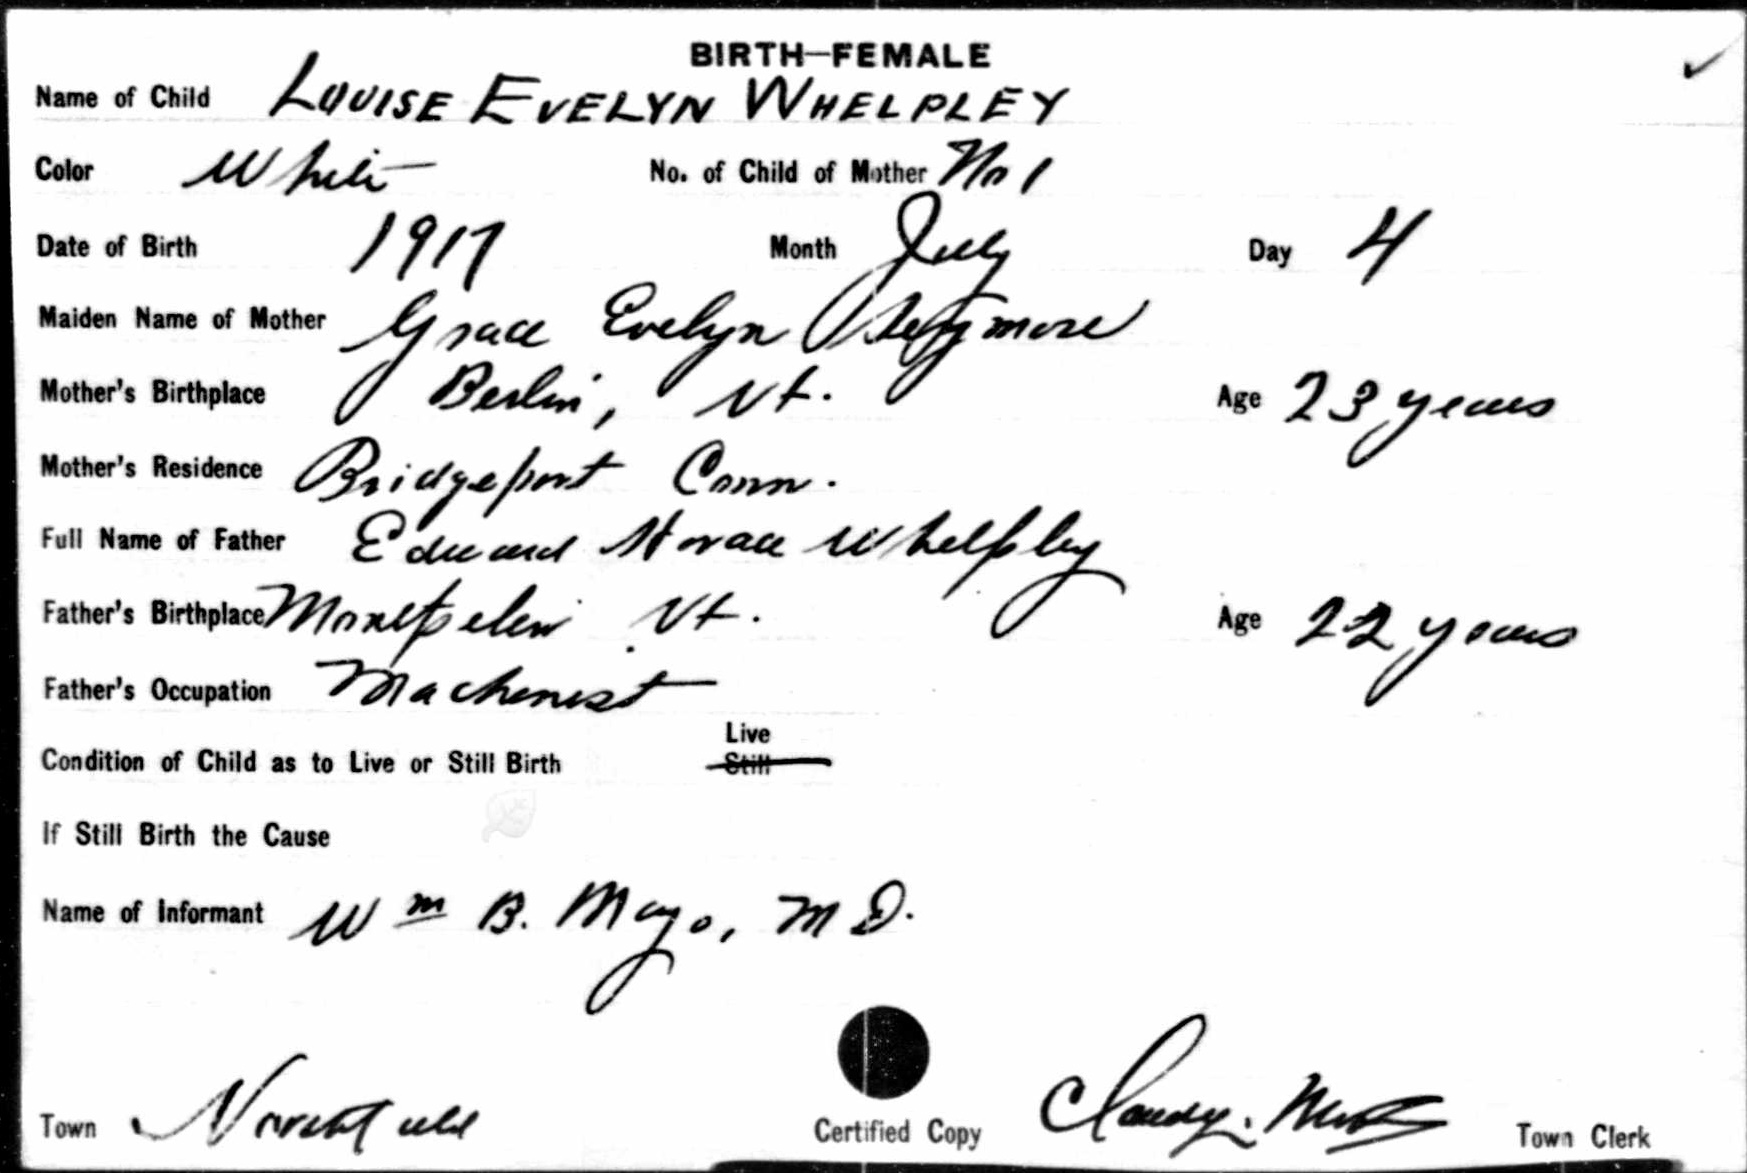 BIRTH—FEMALE
Name of Child LOUISE EVELYN WHELPLEY
Color White No. of Child of Mother No 1
Date of Birth 1917 Month July Day 4
Maiden Name of Mother Grace Evelyn
Mother's Birthplace Berlin, Vt. Age 23 years
Mother's Residence Bridgeport Conn.
Full Name of Father Edward Horace Whelpley
Father's Birthplace Montpelier Vt. Age 22 years
Father's Occupation Machenist
Live
Condition of Child as to Live or Still Birth Still
If Still Birth the Cause
Name of Informant Wm B. Mayo, M D.
Town Northfield Certified Copy Town Clerk